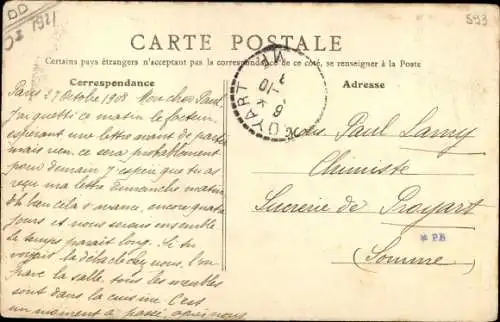 DD
OI 1921
593
CARTE POSTALE
Certains pays étrangers n'acceptant pas la correspondance de ce côté, se renseigner à la Poste
Correspondance
Adresse
Paris 27 Octobre 1908 Mon cher Paul,
J'ai guetté ce matin le facteur
espérant une lettre avant de partir
mais rien, ce sera probablement
pour demain. J'espère que tu as
reçu ma lettre dimanche matin
cela s'avance, encore quatre
jours et nous serons ensemble
le temps paraît long. Si tu
voyais la débacle chez nous, l'on
la salle, tous les meubles
sont dans la cuisine. C'est
un moment à passer, après nous
Paul Lamy
Chimiste
Sucrerie de Proyart
(Somme)
* PB